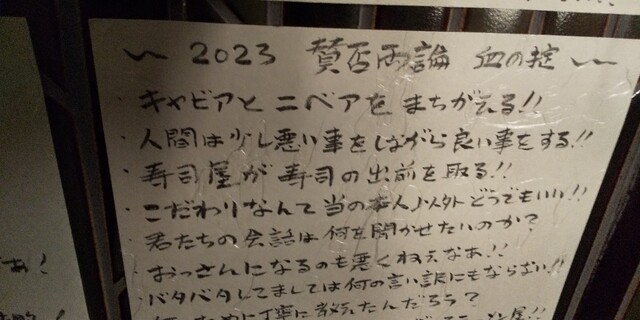 〜 2023 賛否両論 血の掟 〜
・キャビアとニベアをまちがえる!!
・人間は少し悪い事をしながら良い事をする!!
・寿司屋が寿司の出前を取る!!
・こだわりなんて当の本人以外どうでもいい!!
・君たちの会話は何を聞かせたいのか?
・おっさんになるのも悪くねぇなあ!!
・バタバタしてましては何の言い訳にもならない!!
ために丁寧に教えたんだろう?